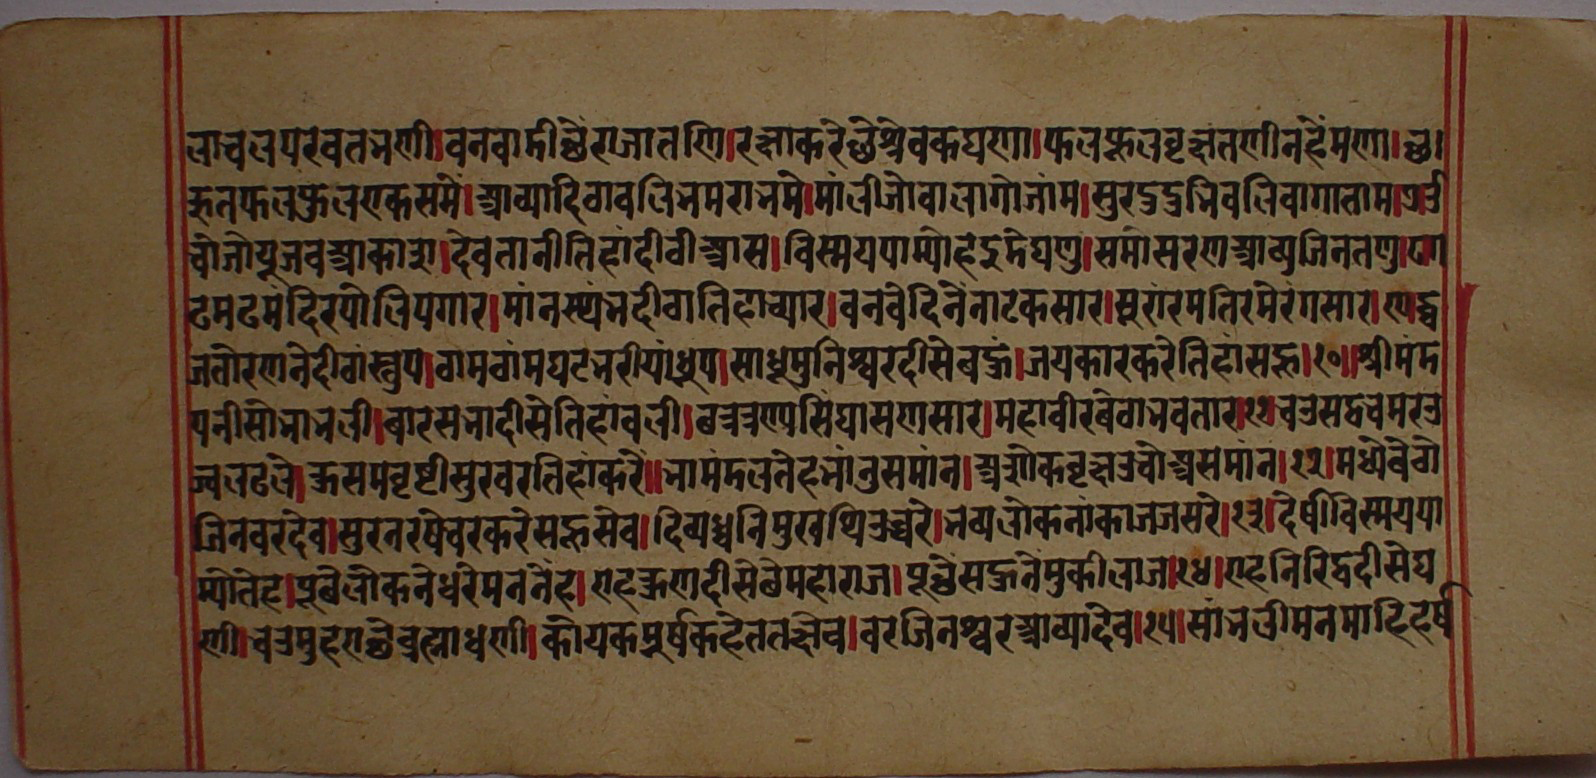 लाचलपरवतभणी।वनवादीछेरजातणि।रक्षाकरेछेश्रेवकघणा।फलफूलवृक्षतणीनहैंमणा।छ।
रुतफलफुलएकसमे।आव्यादिवावलिभमराभमे।मांलीजोवालागोजांम।सुरदुदुभिवलिवागाताम।७।ती
वोजोयुजवआकाश।देवतानीतिहांदीवीआस।विस्मयपाम्योहईडेघणु।समोसरणआव्युजिनतणु।८।ग
ढमढमंदिरपोलिपगार।मांनस्थंभदीवातिहाच्यार।वनवेदिनेनाटकसार।सूरांरमतिरमेरंगसार।९।अ
जवोरणनेदीवांस्तुप।वामवांमघटभरीयांधूप।साधूमुनिश्वरदीसेबहू।जयकारकरेतिहांसहू।१०।श्रीमंद
पनीसोभाभली।बारसभादीसेतिहांवली।बइउणसिंघासणसार।महावीरबेवाभवतार।११।चउसठचमरउ
ज्वलढले।कुसमवृष्टीसुरवरतिहांकरे।भामंदलतेहभांनुसमांन।अशोकवृक्षउवोअसमांन।१२।मध्येबेवो
जिनवरदेव।सुरनरषेचरकरेसहूसेव।दिव्यध्वनिमुखथिउच्चरे।भव्यलोकनांकाजजसरे।१३।देषीविस्मयपा
म्योतेह।पूबेलोकनेधरेमननेह।एहकूणदीसेबेमहाराज।पूछेसहूनेमुकीलाज।१४।एहनिरिद्धदीसेघ
णी।चउमुहएछेब्रह्माधणी।कोयकपूर्षकहेततखेव।वरजिनश्वरआव्यादेव।१५।सांभलीमनमाहिहर्ष